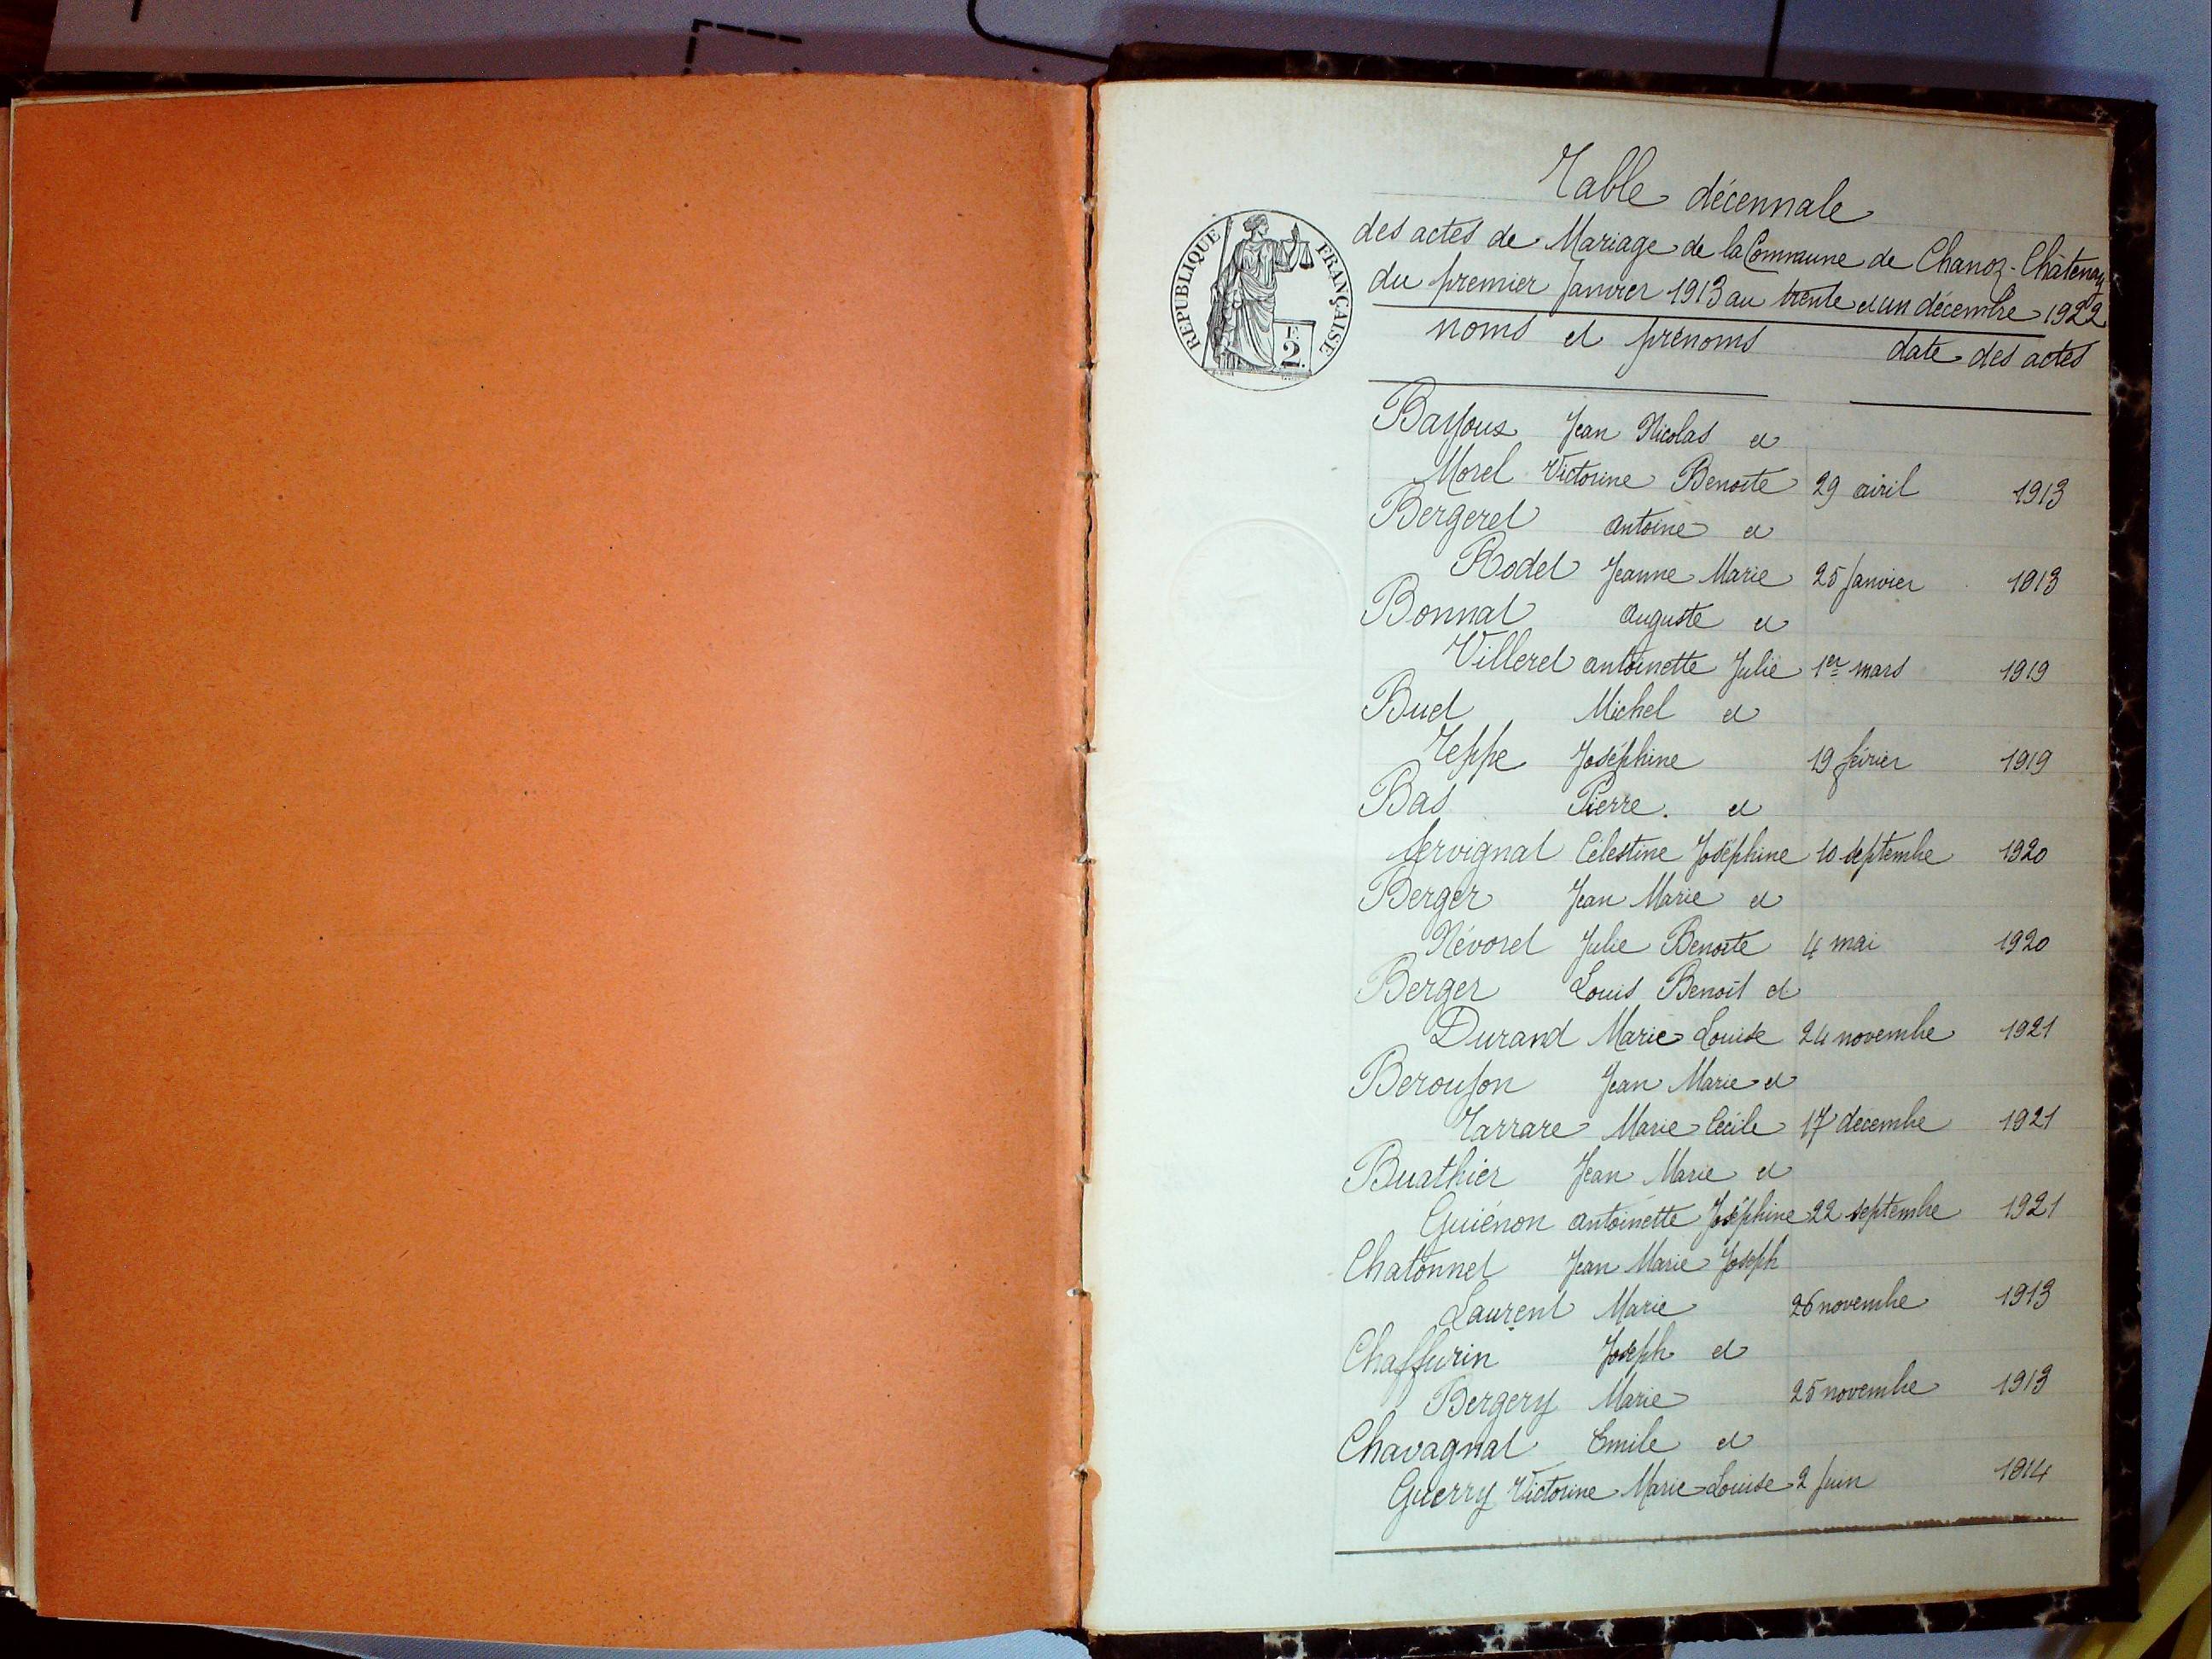 Table décennale
des actes de Mariage de la Commune de Chanoz-Châtenay
du premier Janvier 1913 au trente et un décembre 1922
REPUBLIQUE FRANÇAISE
F. 2.
noms et prénoms date des actes
Jean Nicolas et
Morel Victorine Benoite 29 avril 1913
Bergeret Antoine et
Rodet Jeanne Marie 25 Janvier 1913
Bonnat Auguste et
Villeret Antoinette Julie 1er mars 1919
Buet Michel et
Teppe Joséphine 19 février 1919
Bas Pierre. et
Servignat Célestine Joséphine 10 septembre 1920
Berger Jean Marie et
Névoret Julie Benoite 4 mai 1920
Berger Louis Benoît et
Durand Marie Louise 24 novembre 1921
Beroujon Jean Marie et
Tarrare Marie Cécile 17 decembre 1921
Buathier Jean Marie et
Guiénon Antoinette Joséphine 22 septembre 1921
Chatonnet Jean Marie Joseph
Laurent Marie 26 novembre 1913
Chaffurin Joseph et
Bergery Marie 25 novembre 1913
Chavagnat Emile et
Guerry Victorine Marie-Louise 2 Juin 1914